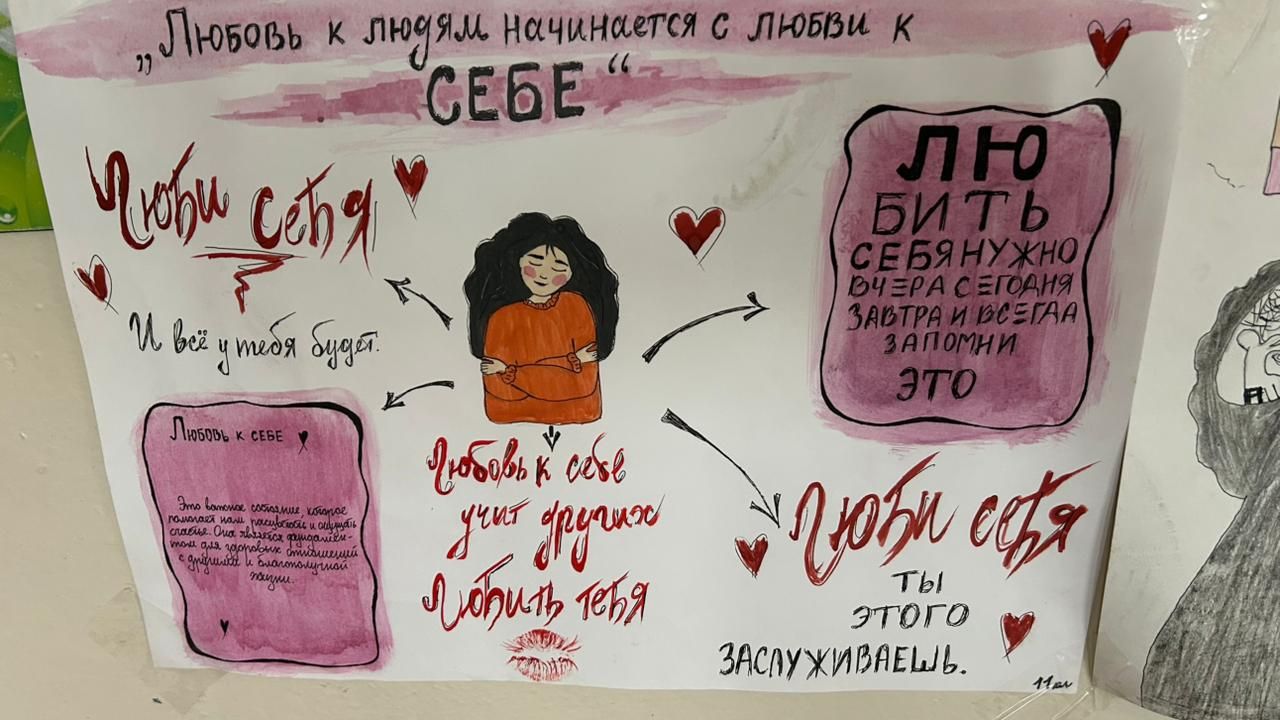 „Любовь к людям начинается с любви к
СЕБЕ“
Люби себя
И всё у тебя будет.
Любовь к себе
Это важное состояние, которое
помогает нам расцветать и ощущать
счастье. Она является фундамен-
том для здоровых отношений
с другими и благополучной
жизни.
Любовь к себе
учит других
Любить тебя
ЛЮ
БИТЬ
СЕБЯ НУЖНО
ВЧЕРА СЕГОДНЯ
ЗАВТРА И ВСЕГДА
ЗАПОМНИ
ЭТО
Люби себя
ТЫ
ЭТОГО
ЗАСЛУЖИВАЕШЬ.